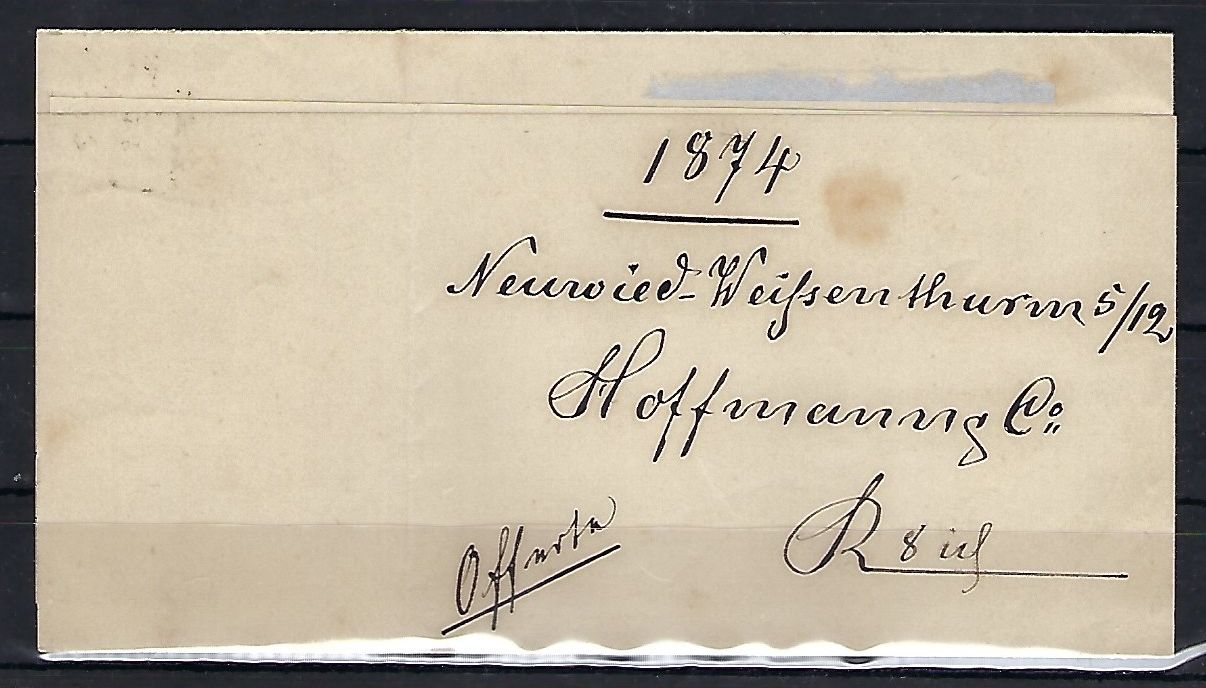 1874
Neuwied-Weißenthurm 5/12
Hoffmann & Co
Offerte
R 8